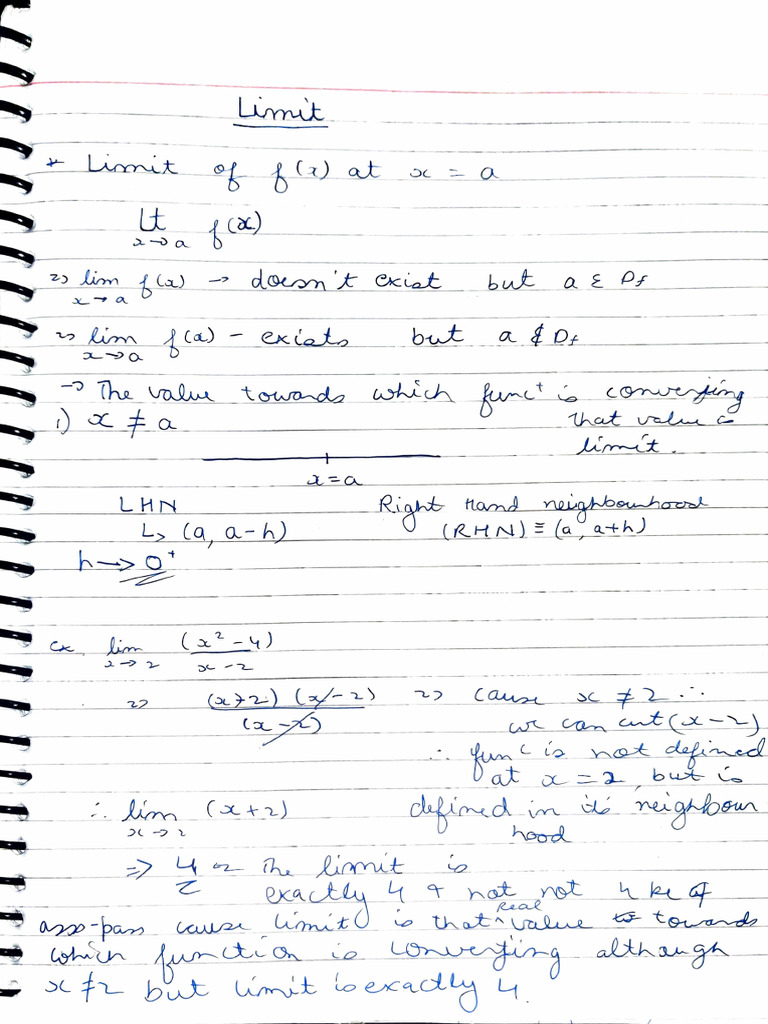 Limit
* Limit of f(x) at x = a
Lt x→a f(x)
⇒ lim x→a f(x) → doesn't exist but a ε Df
⇒ lim x→a f(x) - exists but a ∉ Df
→ The value towards which funcⁿ is converging
1) x ≠ a that value is
limit.
x = a
LHN Right Hand neighbourhood
↳ (a, a-h) (RHN) ≡ (a, a+h)
h → 0⁺
ex. lim x→2 (x²-4)/(x-2)
⇒ (x+2)(x-2)/(x-2) ⇒ cause x ≠ 2 ∴
we can cut (x-2)
∴ func is not defined
at x = 2, but is
∴ lim x→2 (x+2) defined in its neighbour
hood
⇒ 4 ~ The limit is
exactly 4 & not not 4 ke
ass-pass cause limit is that Real value towards
which function is converging although
x ≠ 2 but limit is exactly 4.